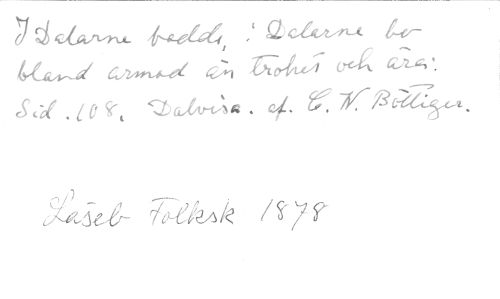 I Dalarne bodde, : Dalarne bo
bland armod än trohet och ära:
Sid. 108. Dalvisa. af. C. W. Böttiger.
Läseb Folksk 1878